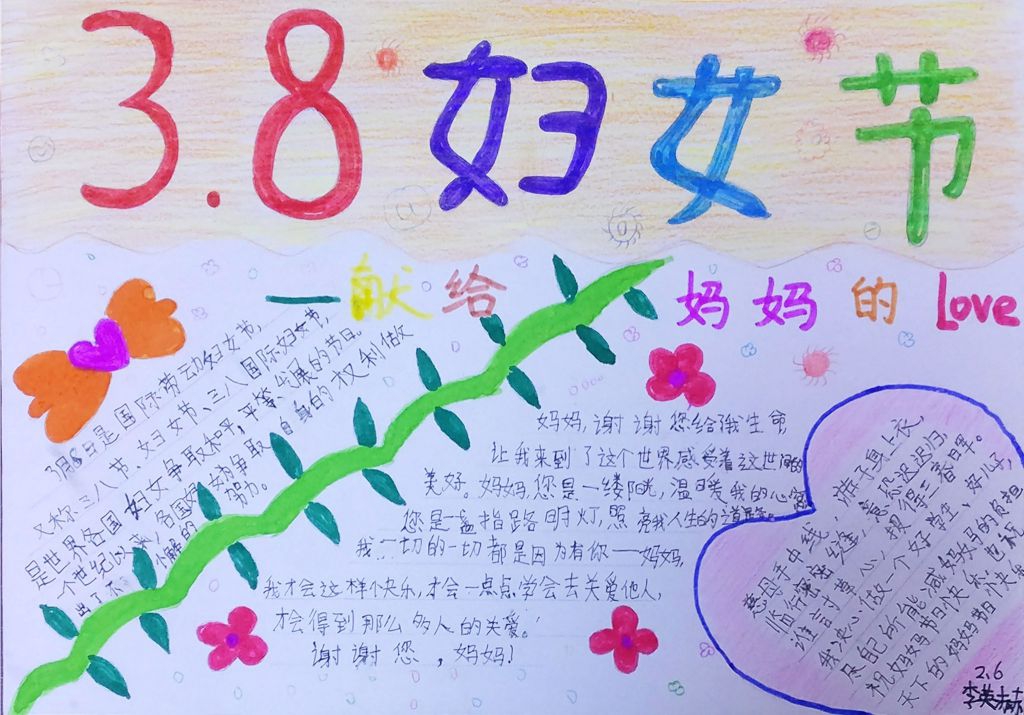 3.8妇女节
—献给妈妈的Love
3月8日是国际劳动妇女节,
又称三八节、妇女节、三八国际妇女节,
是世界各国妇女争取和平,平等发展的节日。
个世纪以来,各国妇女为争取自身的权利做
出了不懈的努力。
妈妈,谢谢您给我生命
让我来到了这个世界感受着这世间的
美好。妈妈,您是一缕阳光,温暖我的心
您是一盏指路明灯,照亮我人生的
我一切的一切都是因为有你——妈妈,
我才会这样个快乐,才会一点点,学会去关爱他人,
才会得到那么多人的关爱。
谢谢您,妈妈!
慈母手中线,游子身上衣,
临行密密缝,意恐迟迟归,
谁言寸草心,报得三春日军。
我决心做一个好学生,好儿子,
尽自己所能减妈妈的负担
祝妈妈节日快乐,也祝
天下的妈妈节日快乐
2.6
李英赫